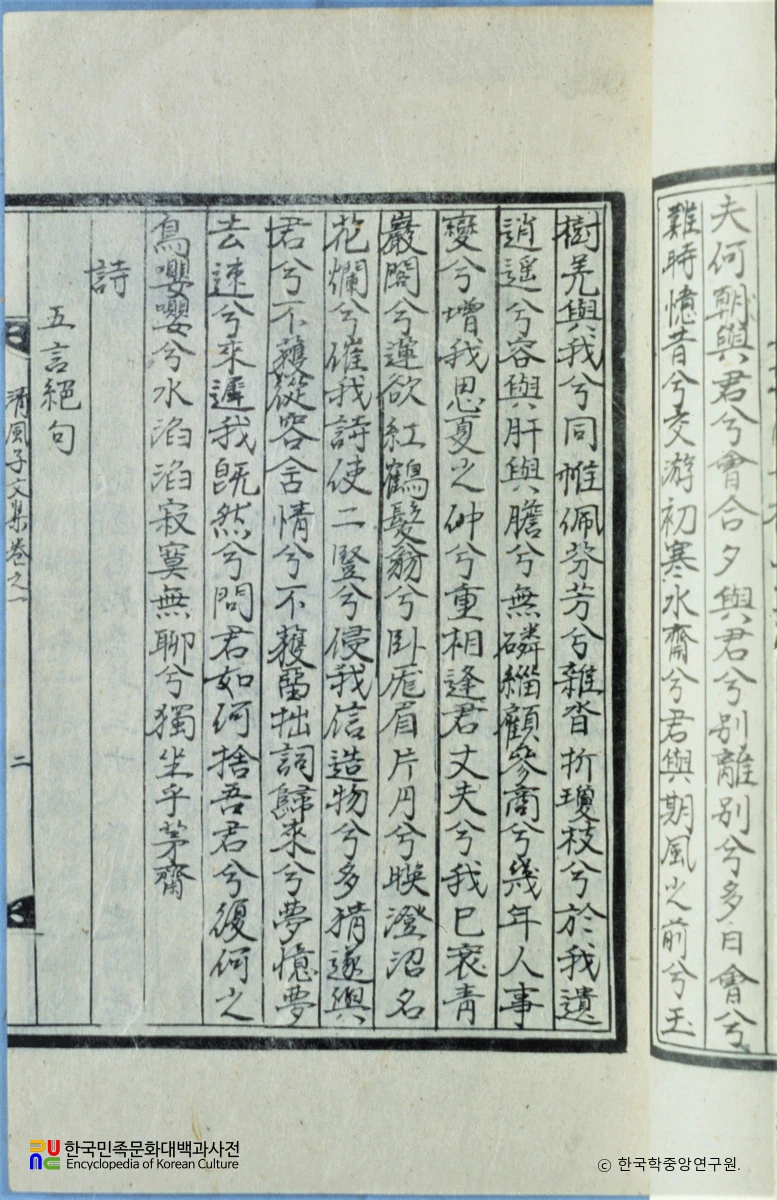 夫何朝與君兮會合夕與君兮別離別兮多日會兮
難時憶昔兮交游初寒水齋兮君與期風之前兮玉
樹羌與我兮同帷佩芬芳兮雜沓折瓊枝兮於我遺
逍遥兮容與肝與膽兮無磷緇顧參商兮幾年人事
變兮增我思夏之仲兮重相逢君丈夫兮我已衰青
巖閣兮蓮欲紅鶴髮翁兮卧厖眉片月兮暎澄沼名
花爛兮催我詩使二竪兮侵我信造物兮多猜遂與
君兮不獲從容含情兮不獲留拙詞歸來兮夢憶夢
去速兮來遲我旣然兮問君如何捨吾君兮復何之
鳥嚶嚶兮水㴞㴞寂寞無聊兮獨坐乎茅齋
詩
五言絕句
清風子文集卷之一
二
한국민족문화대백과사전
Encyclopedia of Korean Culture
ⓒ 한국학중앙연구원.